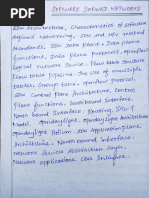 SOFTWARE DEFINED NETWORKS
SDN Architecture, Characteristics of Software
Defined Networking, SDN and NFV related
Standards, SDN Data plane: Data plane
functions, Data plane protocols, Openflow
logical network Device - Flow table structure
Flow table Pipeline, The Use of multiple
Tables, Group Table, Openflow protocol,
SDN Control Plane Architecture, Control
Plane functions, Southbound Interface,
North bound Interface, Routing, ITU-T
Model, Opendaylight, Opendaylight Architecture
Opendaylight Helium, SDN Application Plane
Architecture, North bound interface,
Network Services Abstraction layer,
Network applications, User Interface.